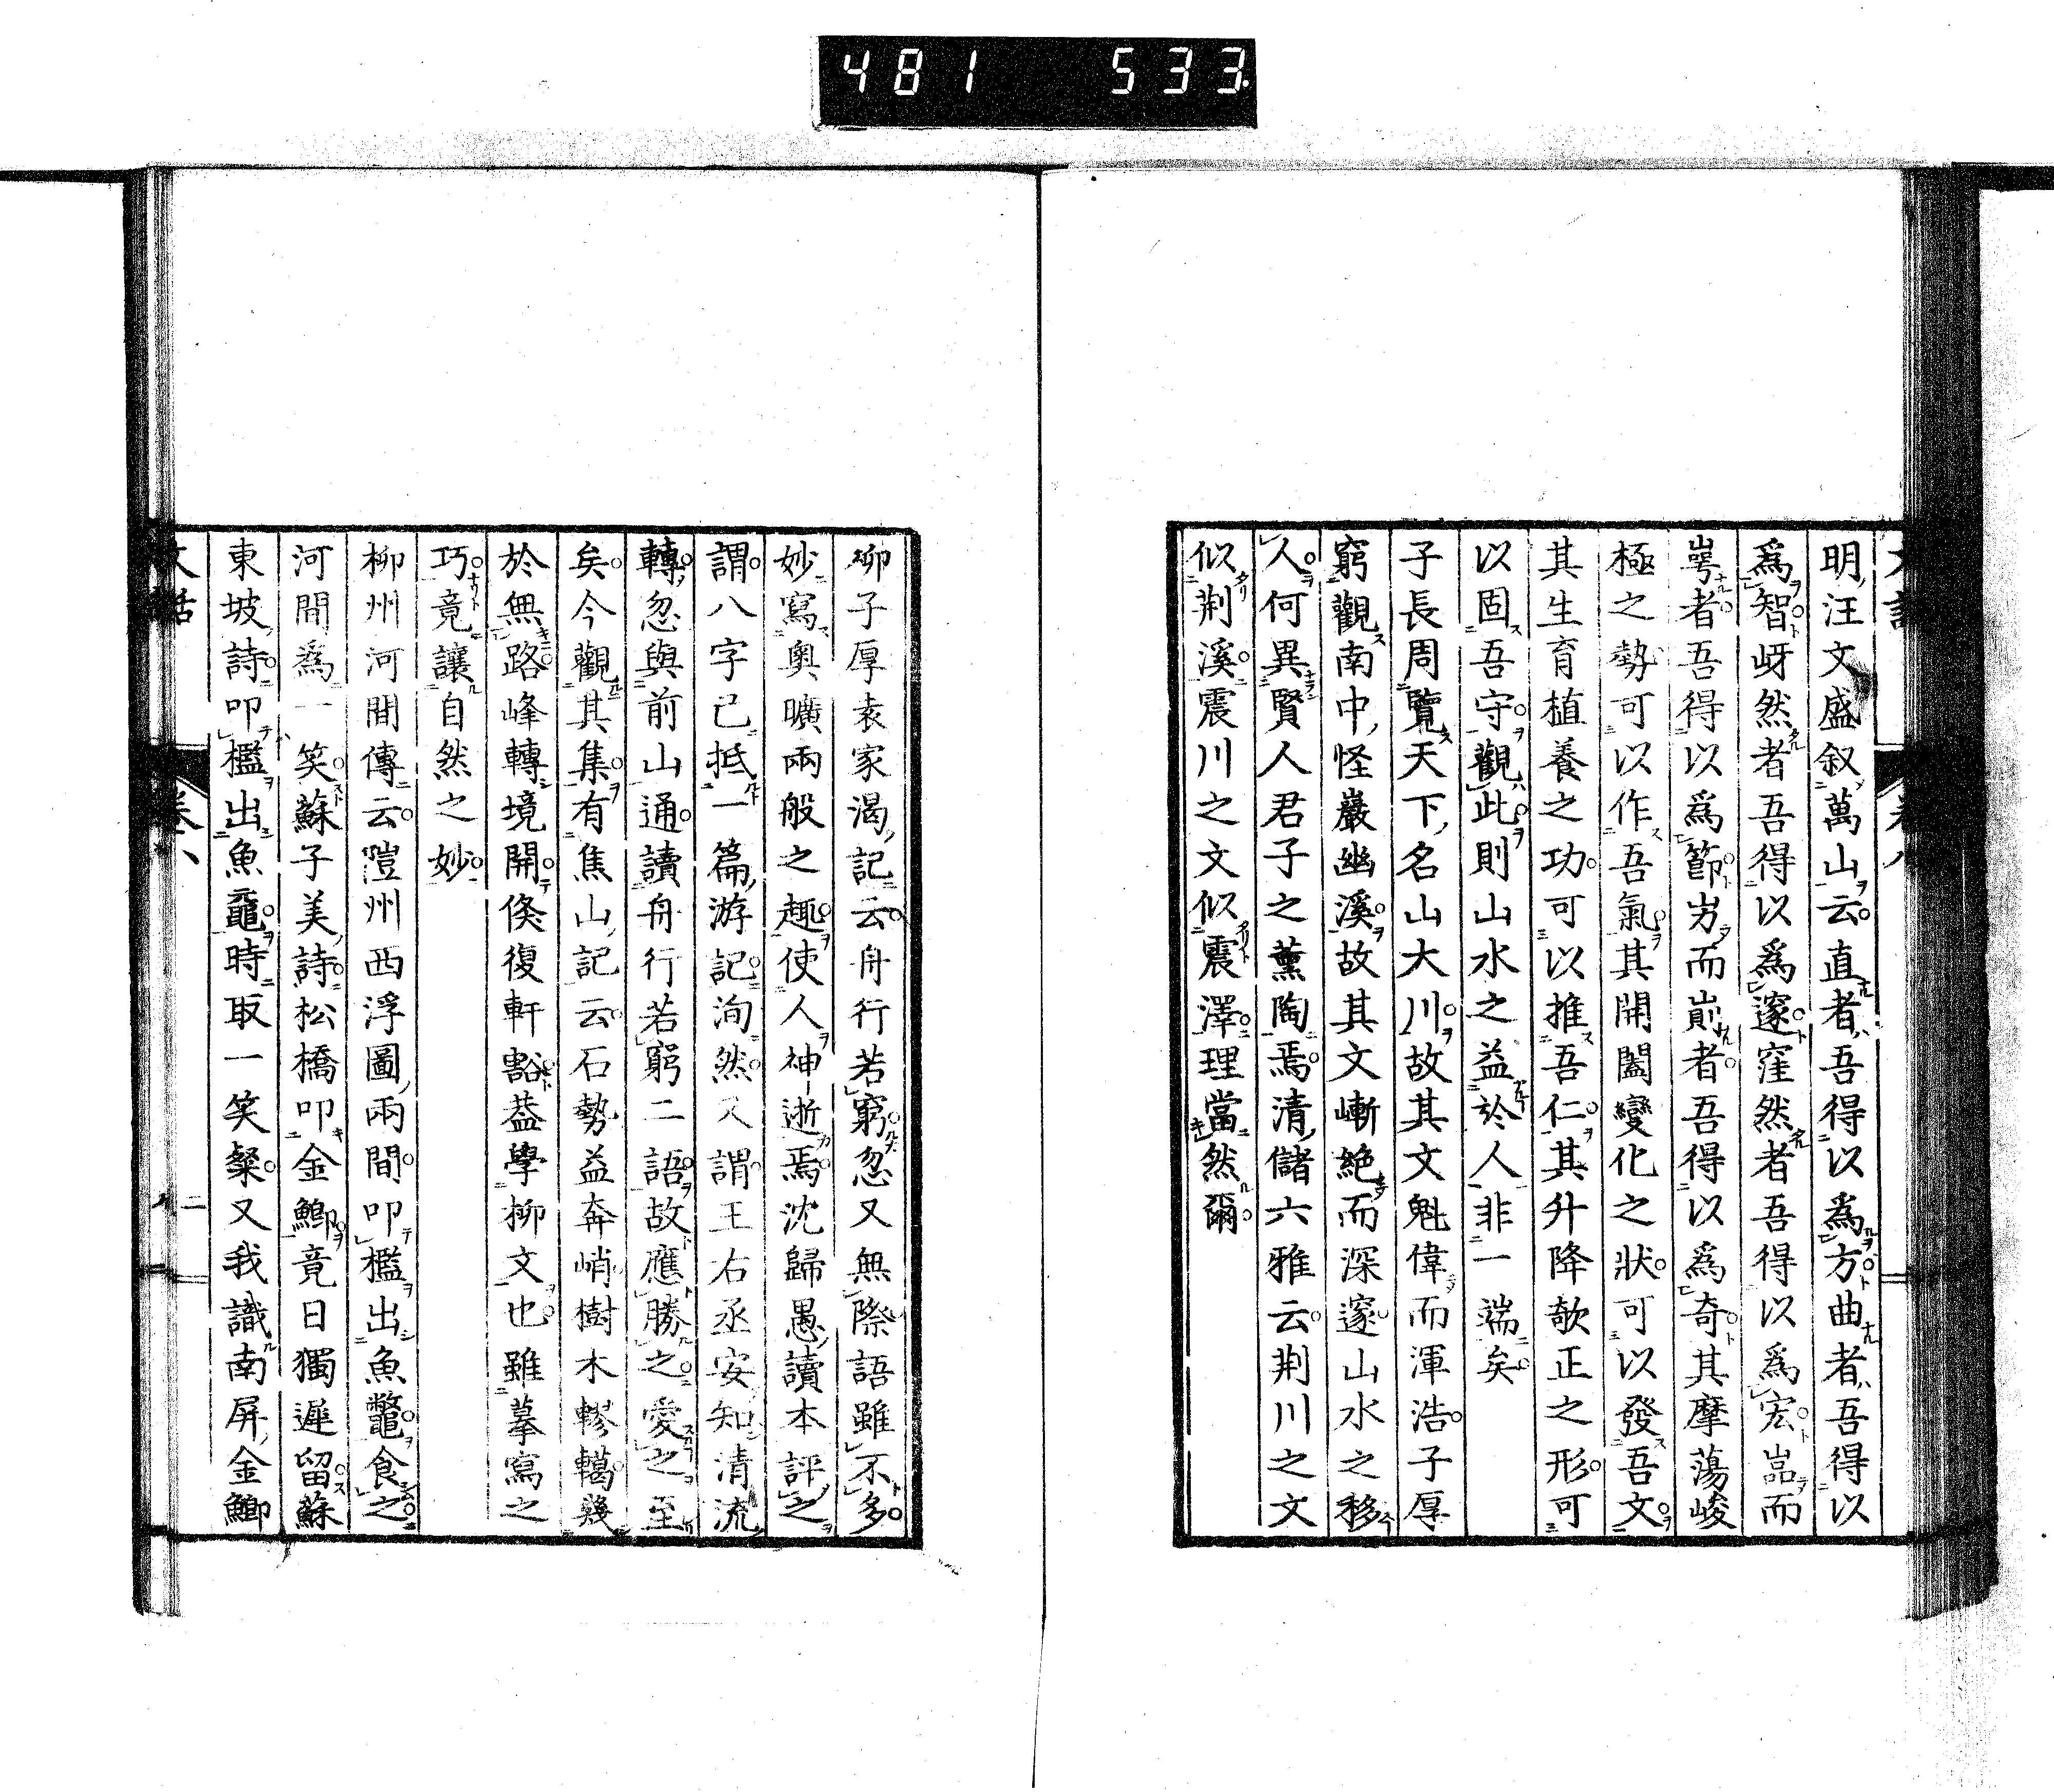 481 533
明汪文盛叙萬山云直者吾得以爲方曲者吾得以
爲智岈然者吾得以爲邃窪然者吾得以爲宏嵓而
崿者吾得以爲節岃而崱者吾得以爲奇其摩蕩峻
極之勢可以作吾氣其開闔變化之狀可以發吾文
其生育植養之功可以推吾仁其升降欹正之形可
以固吾守觀此則山水之益於人非一端矣
子長周覽天下名山大川故其文魁偉而渾浩子厚
窮觀南中怪巖幽溪故其文嶄絶而深邃山水之移
人何異賢人君子之薫陶焉清儲六雅云荆川之文
似荆溪震川之文似震澤理當然爾
柳子厚袁家渴記云舟行若窮忽又無際語雖不多
妙寫奥曠兩般之趣使人神逝焉沈歸愚讀本評之
謂八字已抵一篇游記洵然又謂王右丞安知清流
轉忽與前山通讀舟行若窮二語故應勝之愛之至
矣今觀其集有焦山記云石勢益奔峭樹木轇轕幾
於無路峰轉境開倐復軒豁葢學柳文也雖摹寫之
巧竟讓自然之妙
柳州河間傳云隑州西浮圖兩間叩檻出魚鼈食之
河間爲一笑蘇子美詩松橋叩金鯽竟日獨遲留蘇
東坡詩叩檻出魚黿時取一笑粲又我識南屏金鯽
文話 卷八 二